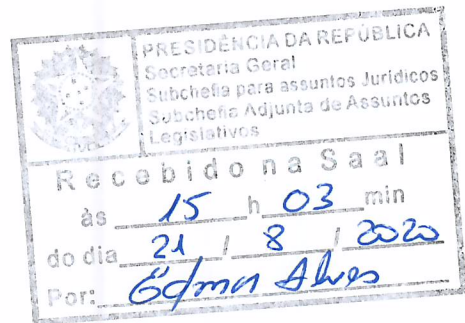 PRESIDÊNCIA DA REPÚBLICA
Secretaria Geral
Subchefia para assuntos Jurídicos
Subchefia Adjunta de Assuntos
Legislativos
Recebido na Saal
às 15 h 03 min
do dia 21 / 8 / 2020
Por: Alves